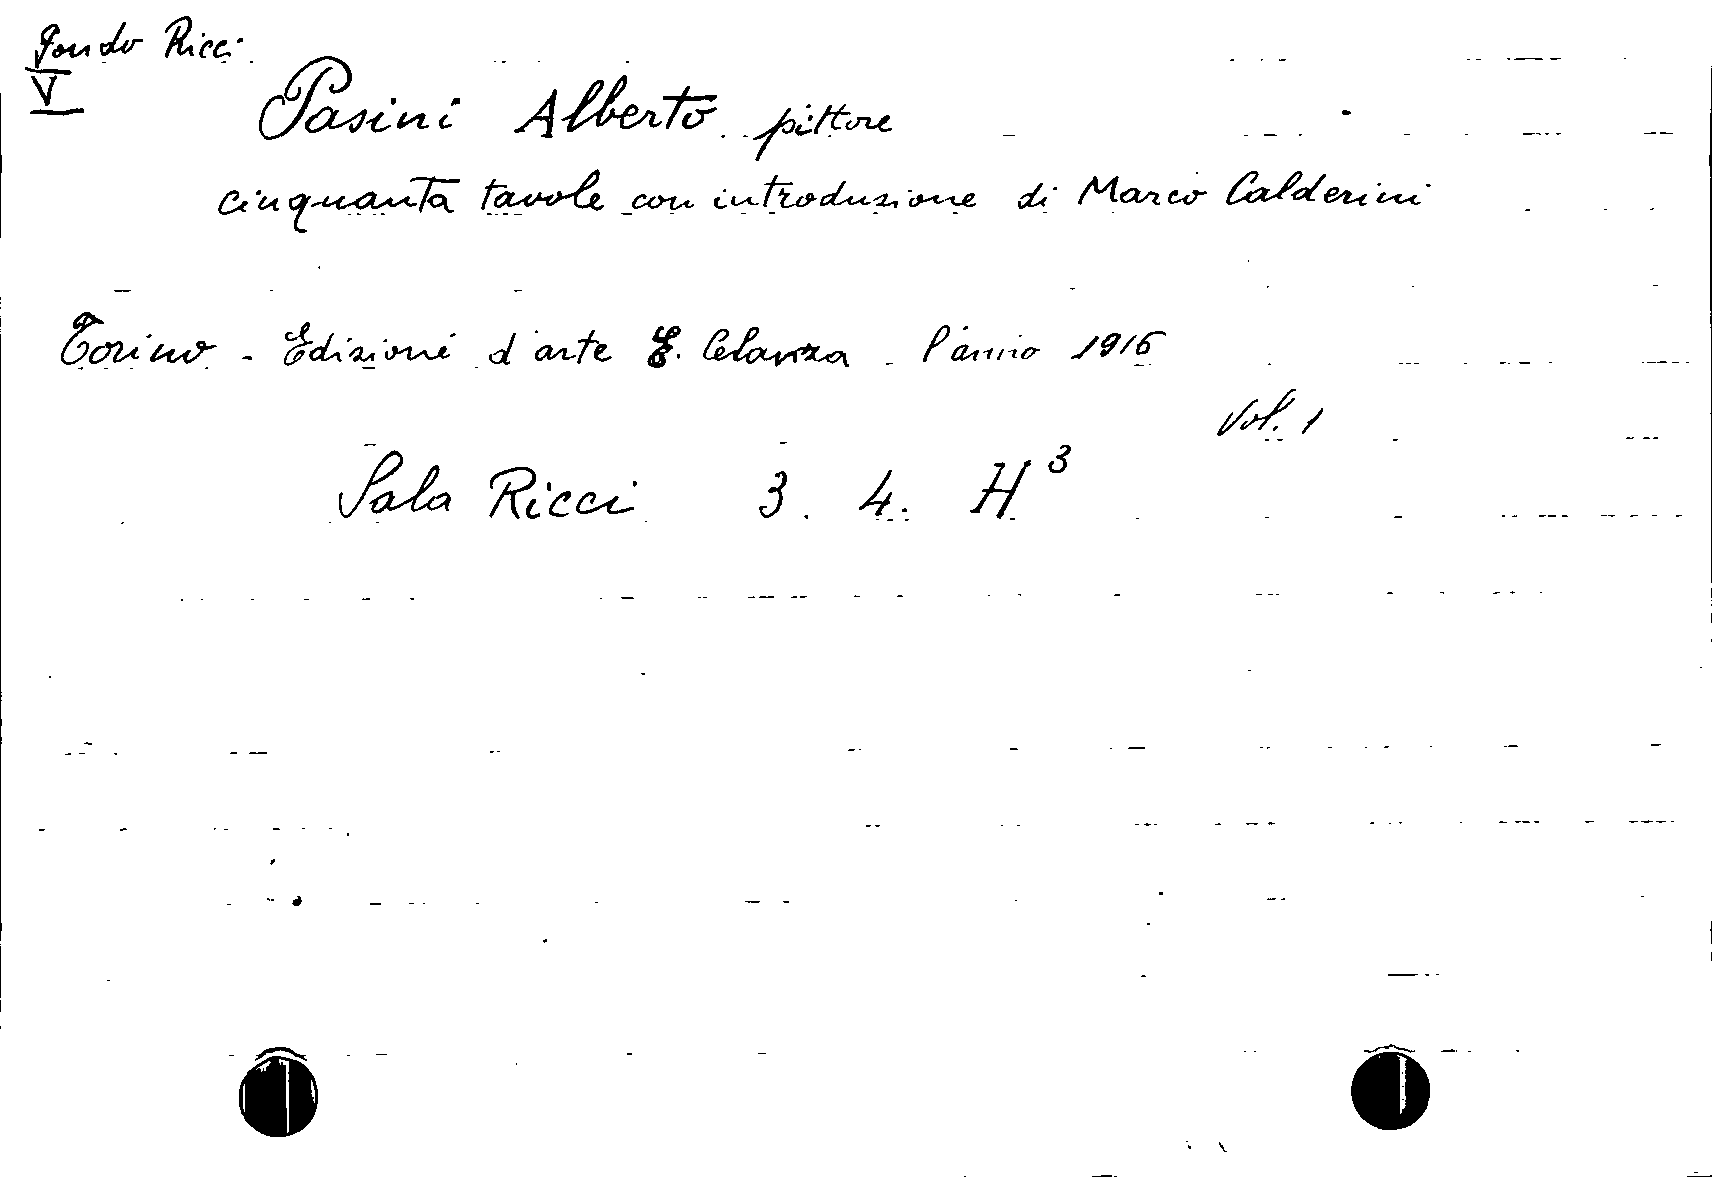 Fondo Ricci
V
Pasini Alberto pittore
cinquanta tavole con introduzione di Marco Calderini
Torino - Edizioni d'arte E. Celanza - l'anno 1916
Vol. 1
Sala Ricci 3. 4. H³